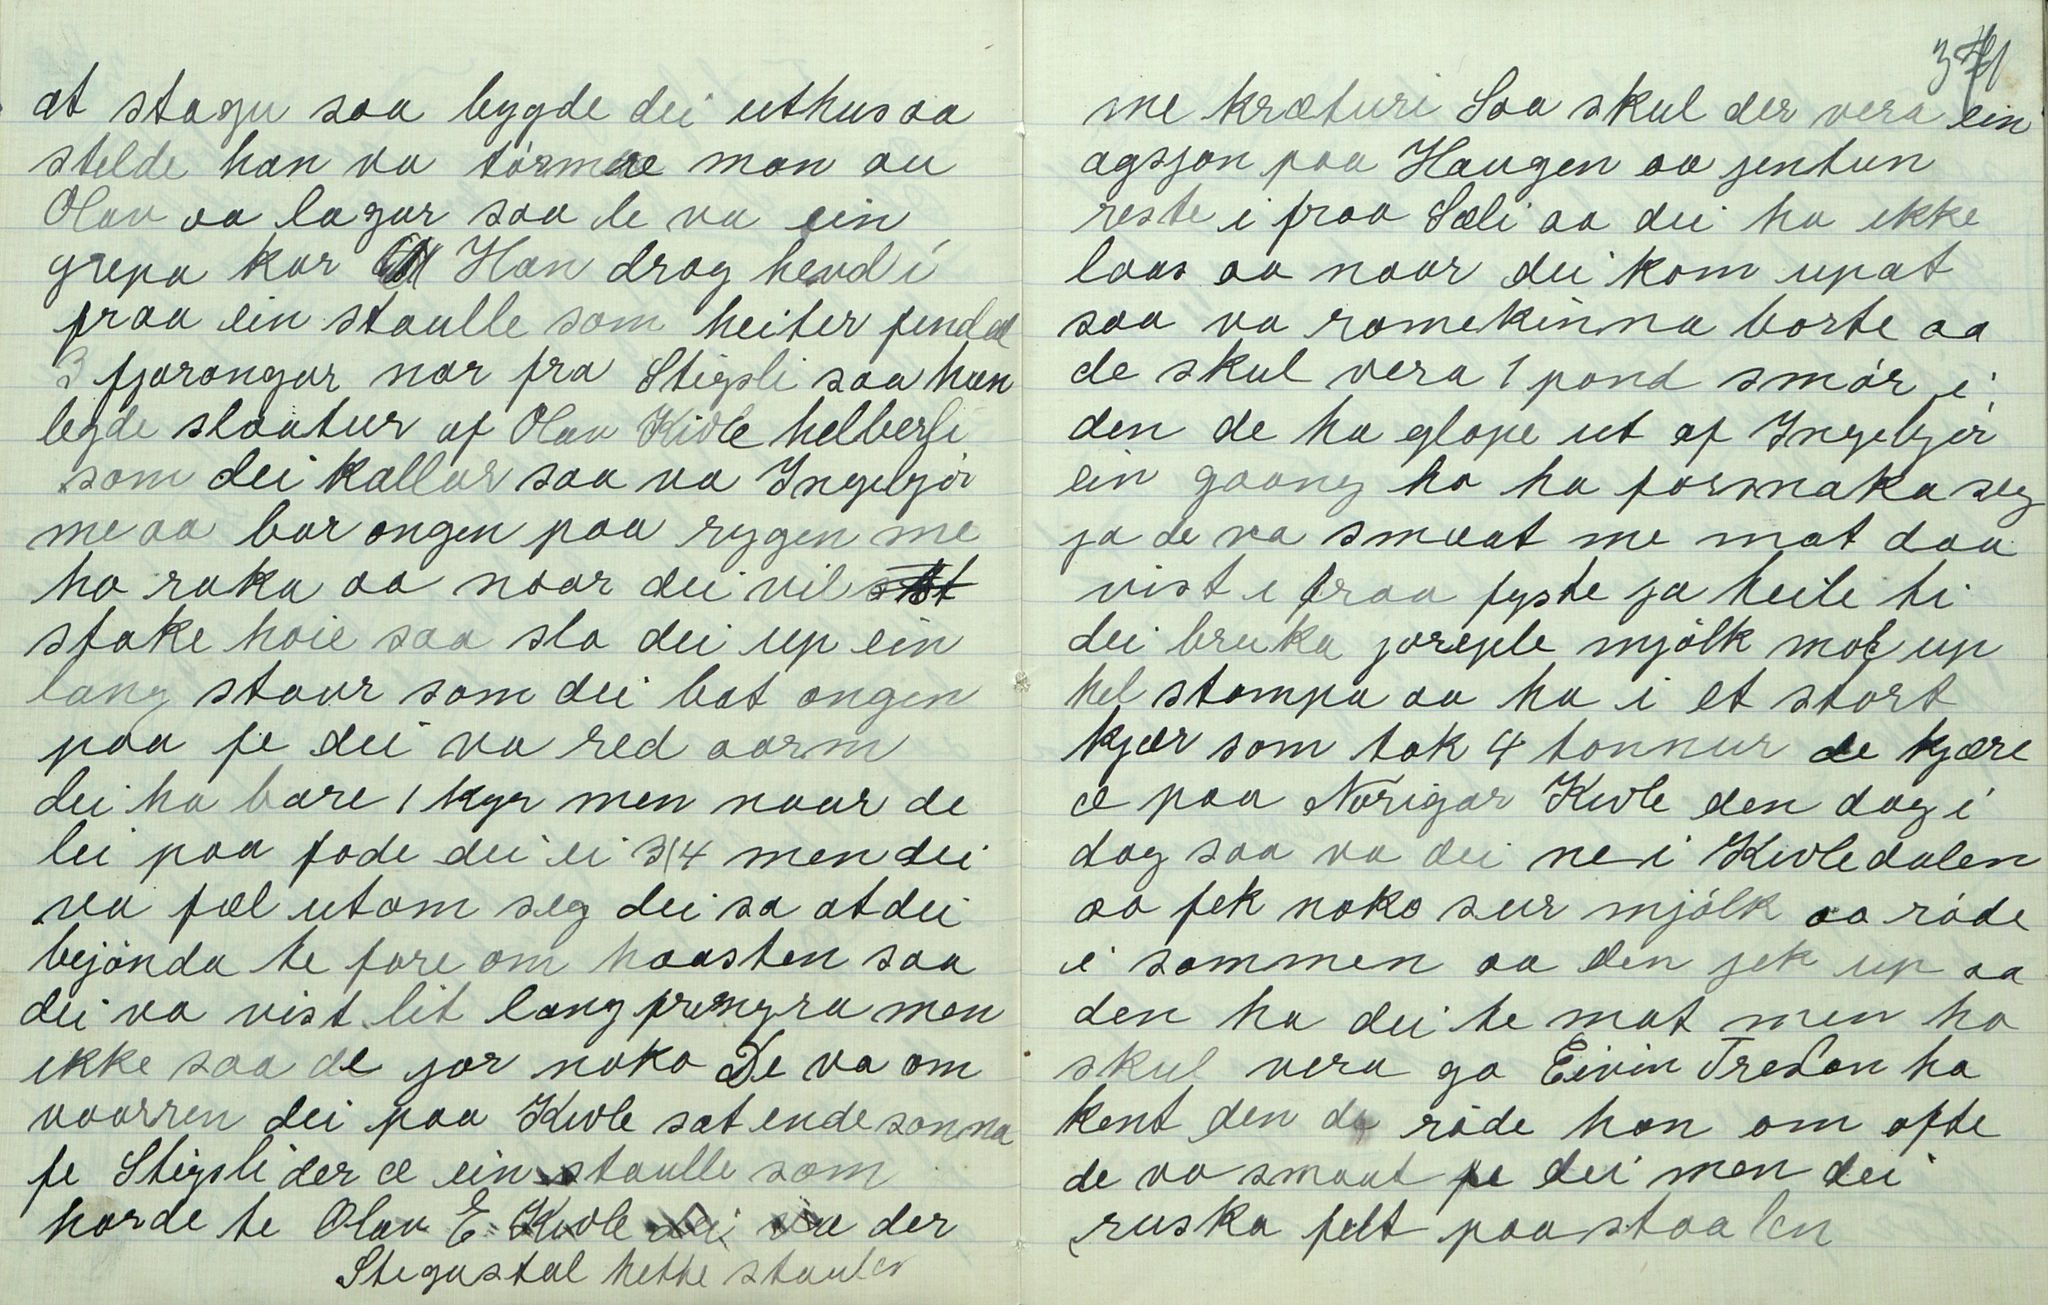 at stogu saa bygde dei uthus aa
stelde han va tórmae man au
Olav aa lagar saa de va ein
grepa kar Han drog hevd i
fraa ein staulle som heiter fendal
3 fjorongar nor fra Stigsli saa han
legde slaatur af Olav Kivle helberji
som dei kallar saa va Ingebjór
me aa bar ongen paa rygen me
ho raka aa naar dei vil
stake hoie saa slo dei up ein
lang staur som dei bat ongen
paa fe dei va red aarm
dei ha bare 1 kyr men naar de
lei paa fode dei ei 3/4 men dei
va fæl utom seg dei sa at dei
bejónda te fare om haasten saa
dei va vist lit langfrengra men
ikke saa de gor noko De va om
vaarren dei paa Kivle sat ende sonna
fe Stigsli der æ ein staulle som
horde te Olav E Kivle dei va der
Stegastal hette staulen
341
me kræturi Saa skul der vera ein
agsjon paa Haugen aa jentun
reste i fraa Sæli aa dei ha ikke
laas aa naar dei kom upat
saa va romekinna borte aa
de skul vera 1 pond smór i
den de ha glope ut af Ingebjór
ein gaang ho ha formaka seg
ja de va smaat me mat daa
vist i fraa fyste ja heile ti
dei bruka jorepple mjólk mos up
hel stompa aa ha i et stort
kjær som tok 4 tonnur de kjære
æ paa Norigar Kivle den dag i
dag saa va dei ne i Kivledalen
aa fek noko sur mjólk aa róde
i sommen aa den jek up aa
den ha dei te mat men ho
skul vera go Eivin Tredon ha
kent den de róde han om ofte
de va smaat fe dei men dei
ruska felt paa staalen